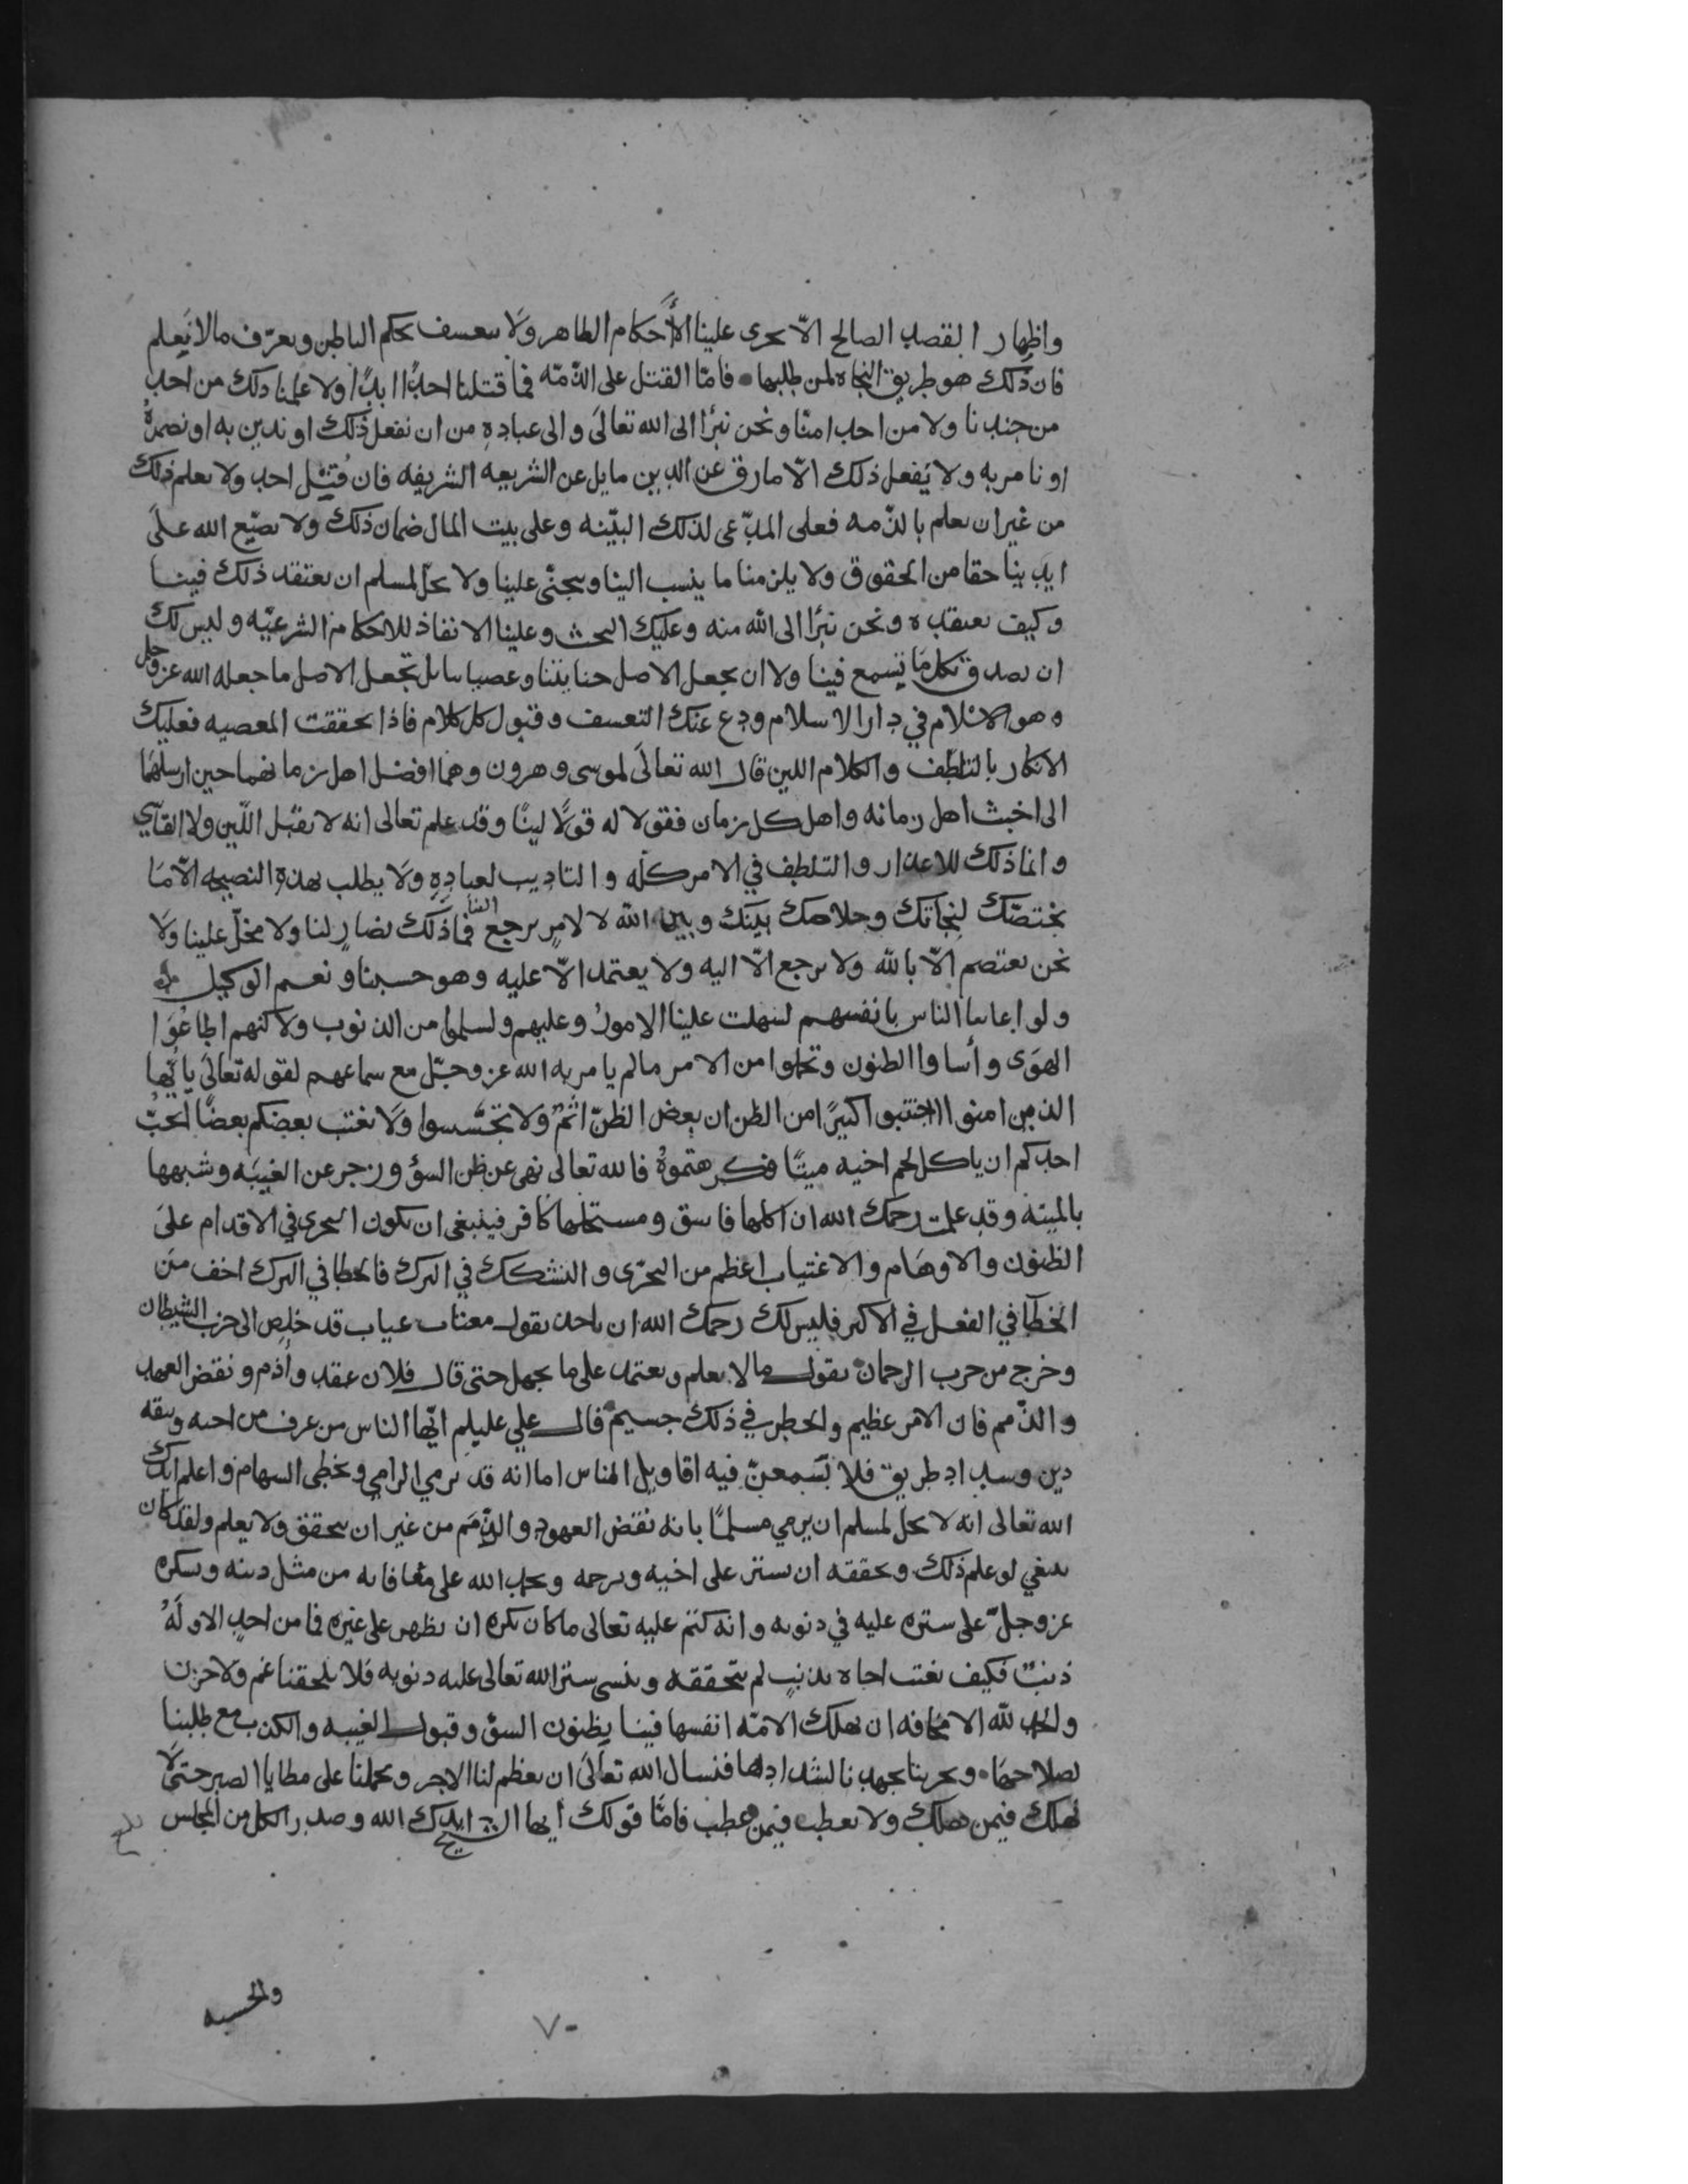 واظهار القصد الصالح الّا يحرى علينا الأحكام الطاهر ولا يتعسف بحكم الباطن ويعرّف مالا يَعلم
فان ذلك هو طريق النجاه لمن طلبها • فامّا القتل على الذّمّه فما قتلنا احدًا ابدًا ولا علمنا ذلك من احد
من جندنا ولا من احد امنّا ونحن نبرَا الى الله تعالىَ والى عبادهِ من ان نفعل ذلك او ندين به او نصرهُ
او نامر به ولا يَفعل ذلك الّا مارق عن الدين مايل عن الشريعه الشريفه فان قُتِل احد ولا يعلم ذلك
من غير ان يعلم بالذّمه فعلى المدّعى لذلك البيّنه وعلى بيت المال ضمان ذلك ولا يضيّع الله علىَ
ايدينا حقا من الحقوق ولا يلزمنا ما ينسب الينا ويجنّى علينا ولا يحلّ لمسلم ان يعتقد ذلك فينا
وكيف يعتقده ونحن نبرَا الى الله منه وعليك البحث وعلينا الانفاذ للاحكام الشرعيّه وليس لك
ان تصدق بكل مَا تَسمع فينا ولا ان تجعل الاصل جنايتنا وعصياننا بل تجعل الاصل ما جعله الله عز وجل
وهو الاسلام في دار الاسلام ودع عنك التعسف وقبول كل كلام فاذا تحققت المعصيه فعليك
الانكار بالتلطّف والكلام اللين قال الله تعالىَ لموسى وهرون وهما افضل اهل زمانهما حين ارسلهمَا
الى اخبث اهل زمانه واهل كل زمان فقولا له قولًا لينًا وقد علم تعالى انه لا يقبل اللّين ولا القاسي
وانما ذلك للاعذار والتلطف في الامر كلّه والتاديب لعبادِهِ ولا يطلب بهذهِ النصيحه الّا مَا
يختصّك لنجاتك وخلاصك بينك وبين الله لا لامرٍ يرجع الينا فما ذلك بضارٍ لنا ولا مخلّ علينا ولَا
نحن نعتصم الّا بالله ولا نرجع الّا اليه ولا يعتمد الّا عليه وهو حسبنا ونعم الوكيل
ولو اعاننا الناس بانفسهم لسَهلت علينا الامورُ وعليهم ولسلموا من الذنوب ولاكنهم اطاعُوَا
الهوَى وأساوا الظنون وتحملوا من الامر مالم يامر به الله عز وجّل مع سماعهم لقوله تعالىَ يا أيّها
الذين امنوا اجتنبوا كثيرًا من الظن ان بعض الظنّ اثمٌ ولا تجسّسوا وَلا يغتب بعضكم بعضًا أيحبّ
احدكم ان ياكل لحم اخيه ميتًا فكرهتموهُ فالله تعالى نهى عن ظن السؤ وزجر عن الغيبَه وشبهها
بالميته وقد علمت رحمك الله ان اكلها فاسق ومستحلها كافر فينبغى ان يكون التحرى في الاقدام علىَ
الظنون والاوهَام والاغتياب اعظم من التحرّى والتشكك في الترك فالخطا في الترك اخف منَ
الخطَا في الفعل في الاكبر فليس لك رحمك الله ان تاخذ بقول مغتاب عياب قد خلص الى حزب الشيطان
وخرج من حزب الرحمان يقول مالا يعلم ويعتمد على ما يجهل حتى قال فلان عقد وأذم ونقض العهد
والذّمم فان الامر عظيم والخطر في ذلك جسيم قال علي عليلم ايّها الناس من عرف من اخيه وثيقه
دين وسداد طريق فلا يَسمعنّ فيه اقاويل الناس اما انه قد يرمي الرامي وتخطى السهام واعلم ايدك
الله تعالى انه لا يحلّ لمسلم ان يرمي مسلمًا بانه نقض العهود والذّمَم من غير ان يتحقق ولا يعلم ولقد كان
ينبغي لو علم ذلك وتحققه ان يستر على اخيه ويرحمه ويحمد الله على معافاته من مثل دينه ويشكره
عز وجلّ على ستره عليه في ذنوبه وانه كتم عليه تعالى ما كان يكره ان يظهر على غيره فما من احدٍ الا ولَهُ
ذنبٌ فكيف يغتب اخاه بذنبٍ لم يتحققه وينسى ستر الله تعالى عليه ذنوبه فلا يلحقنا غم ولا حزن
والحمد لله الا مخافه ان تهلك الامّه انفسها فينا بظنون السوّ وقبول الغيبه والكذب مع طلبنا
لصلاحهَا • وتحرينا بجهدنا لسدادها فنسال الله تعالىَ ان يعظم لنا الاجر ويحملنا على مطايا الصبر حتىَ لَا
نهلك فيمن هلك ولا نعطب فيمن عطب فامّا قولك ايها الشيخ ايدك الله وصدر الكل من المجلس
٧٠